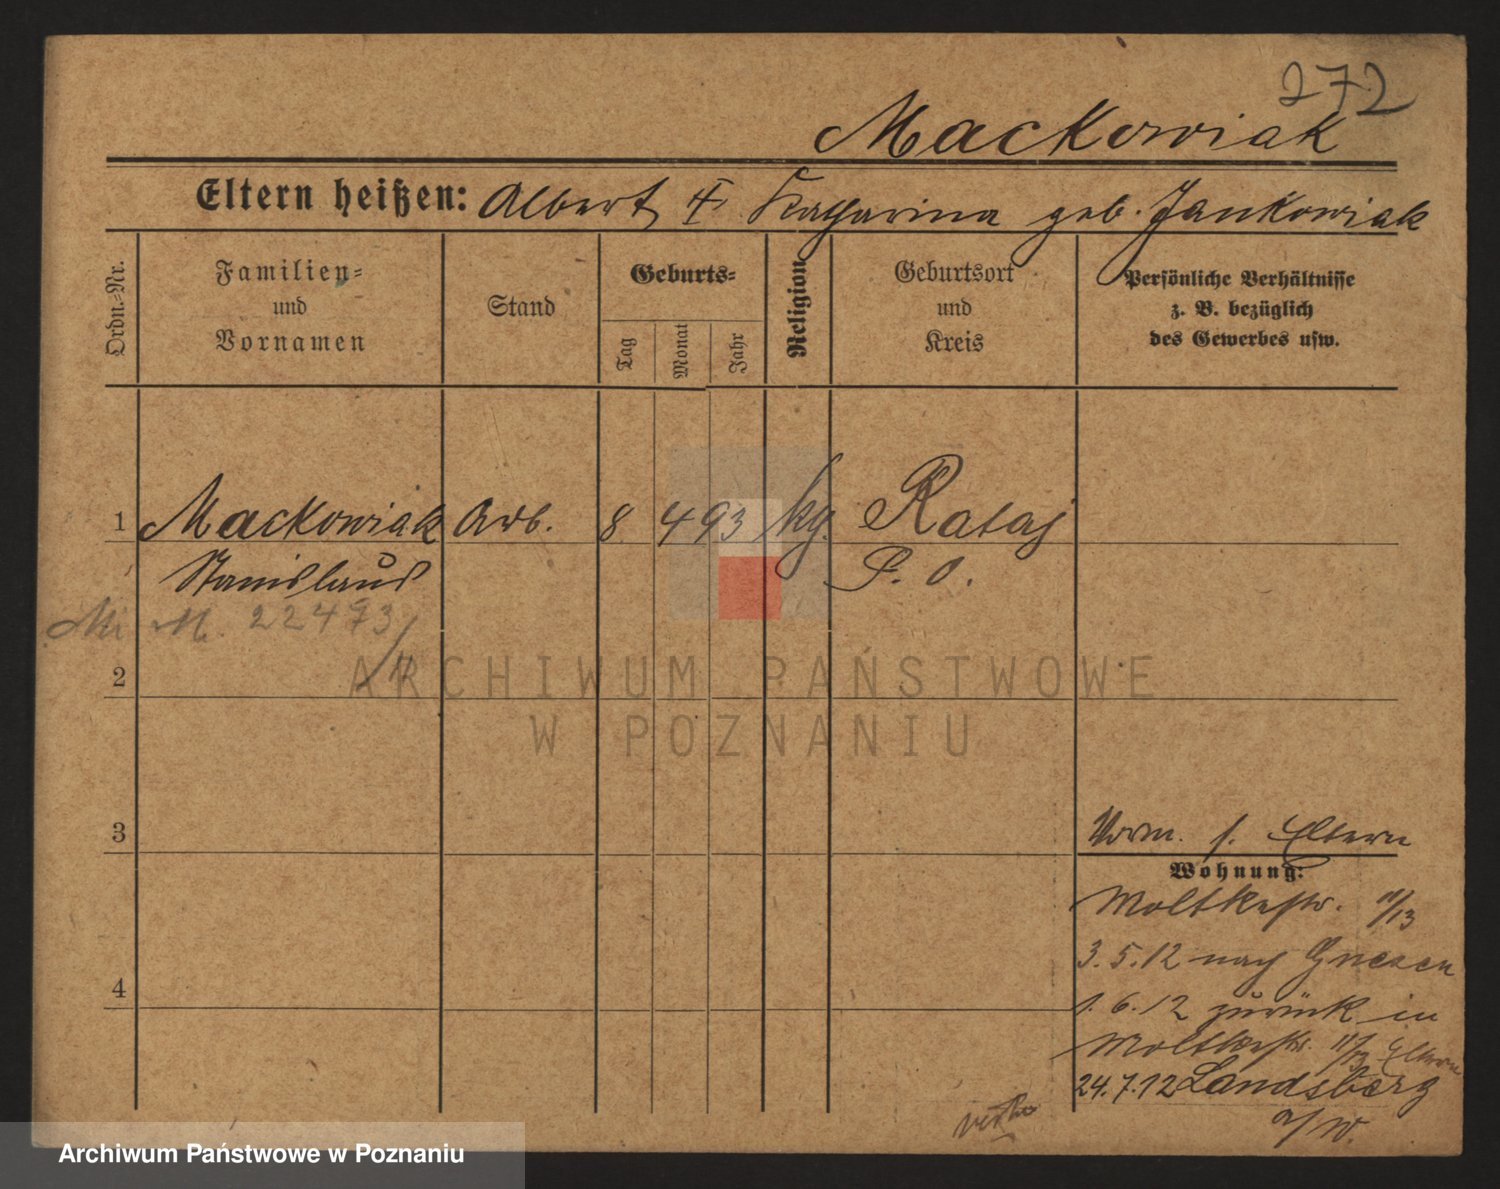 272
Mackowiak
Eltern heißen: Albert u Katharina geb. Jankowiak
Ordn.-Nr.
Familien-
und
Vornamen
Stand
Geburts-
Tag
Monat
Jahr
Religion
Geburtsort
und
Kreis
Persönliche Verhältnisse
z. B. bezüglich
des Gewerbes usw.
1 Mackowiak Arb. 8 4 93 kg. Rataj
Stanislaus P. O.
M. 22473/
2
ARCHIWUM PAŃSTWOWE
W POZNANIU
3
Vorm. s. Eltern
Wohnung:
Moltkestr. 11/13
3.5.12 nach Gnesen
4
1.6.12 zurück in
Moltkestr. 11/13 Eltern
24.7.12 Landsberg
a/W.
Archiwum Państwowe w Poznaniu